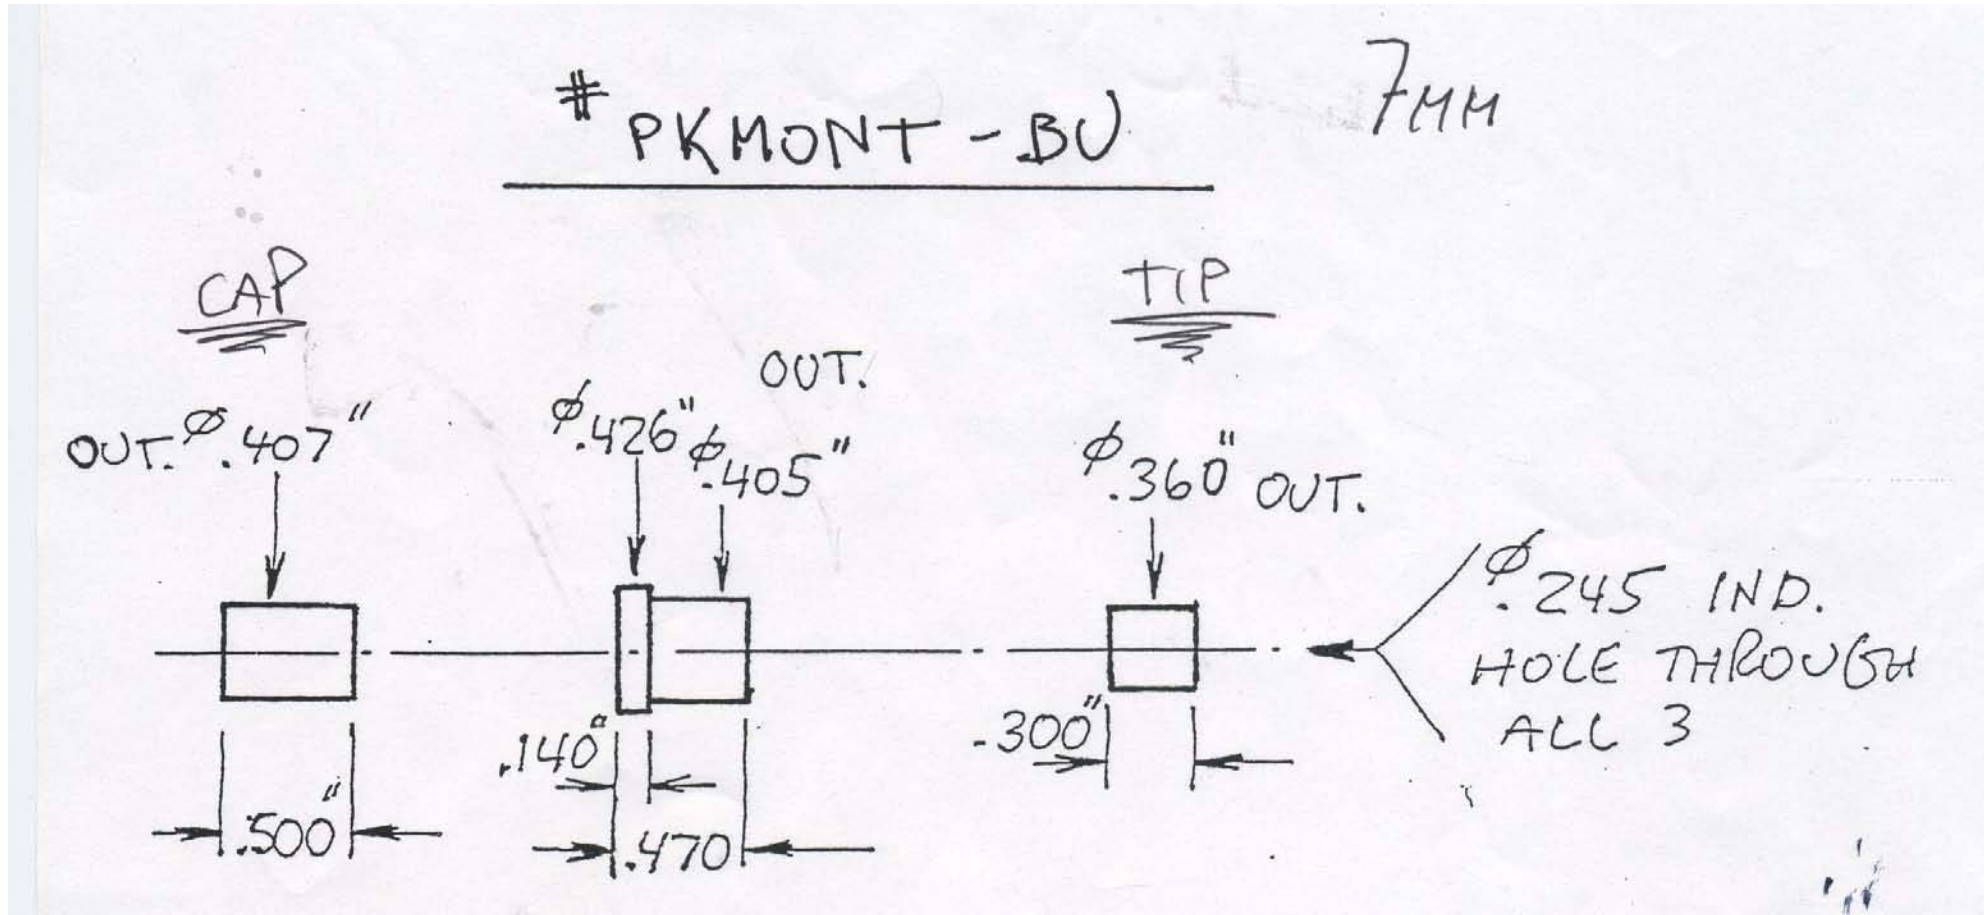 # PKMONT-BU
7MM
CAP
TIP
OUT. Ø.407"
Ø.426"
OUT.
Ø.405"
Ø.360" OUT.
Ø.245 IND.
HOLE THROUGH
ALL 3
.140"
.300"
.500"
.470